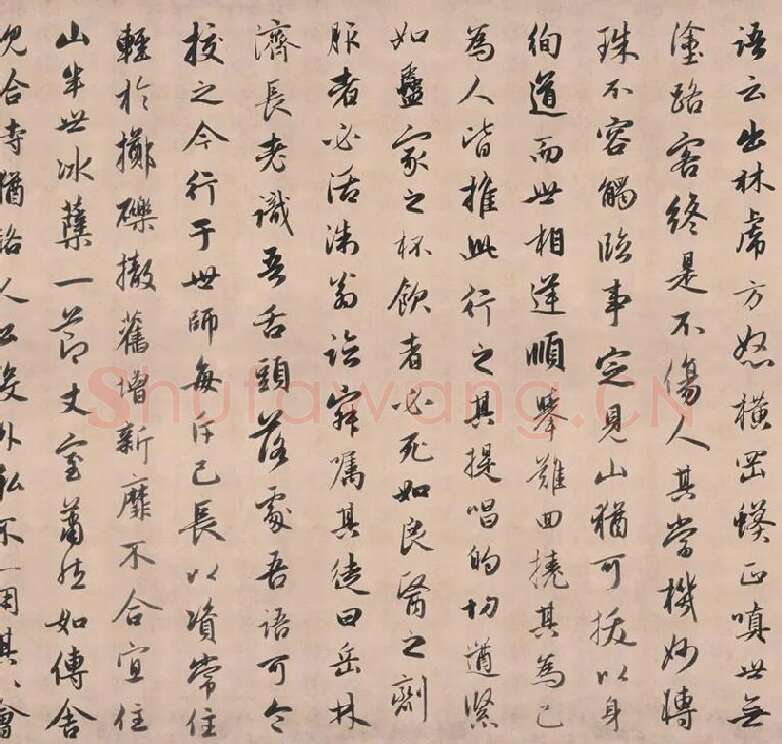 語云出林虎方怒橫罡蟆正嗔世無
塗路客終是不傷人其當機妙轉
珠不容觸臨事定見山猶可拔以身
徇道而世相逆順舉難回撓其為己
為人皆推此行之其提唱的切遒緊
如蠱家之杯飲者必死如良醫之劑
服者必活洙翁訟寐囑其徒曰岳林
濟長老識吾舌頭落處吾語可令
校之今行于世師每斥己長以資常住
輕於擲礫撤舊增新靡不合宜住
山半世冰蘗一節丈室蕭然如傳舍
合寺猶諸人公没外私不一用其
Shufawang.CN